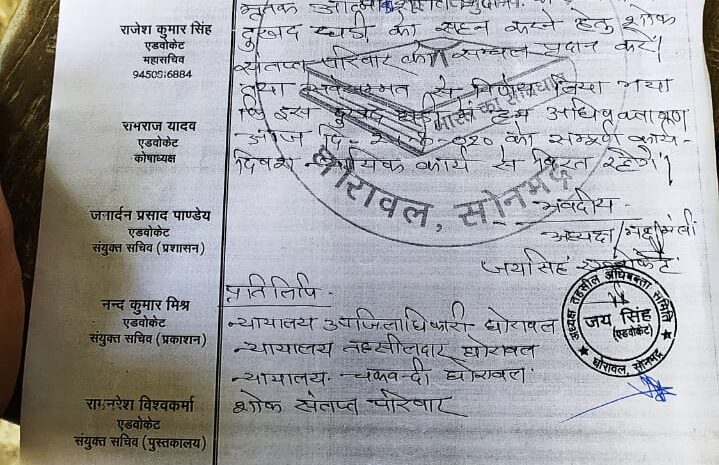 राजेश कुमार सिंह
एडवोकेट
महासचिव
9450816884
रामराज यादव
एडवोकेट
कोषाध्यक्ष
जनार्दन प्रसाद पाण्डेय
एडवोकेट
संयुक्त सचिव (प्रशासन)
नन्द कुमार मिश्र
एडवोकेट
संयुक्त सचिव (प्रकाशन)
रामनरेश विश्वकर्मा
एडवोकेट
संयुक्त सचिव (पुस्तकालय)
दुखद घड़ी को सहन करने हेतु शोक
संतप्त परिवार को सम्बल प्रदान करें।
तथा सर्वसम्मत से निर्णय लिया गया
कि इस दुखद घड़ी में हम अधिवक्तागण
आज दि- को सम्पूर्ण कार्य-
दिवस न्यायिक कार्य से विरत रहेंगे।
घोरावल, सोनभद्र
भवदीय
अध्यक्ष/महामंत्री
जयसिंह एडवोकेट
अध्यक्ष तहसील अधिवक्ता समिति
जय सिंह
(एडवोकेट)
घोरावल, सोनभद्र
प्रतिलिपि-
न्यायालय उपजिलाधिकारी घोरावल
न्यायालय तहसीलदार घोरावल
न्यायालय चकबन्दी घोरावल
शोक संतप्त परिवार